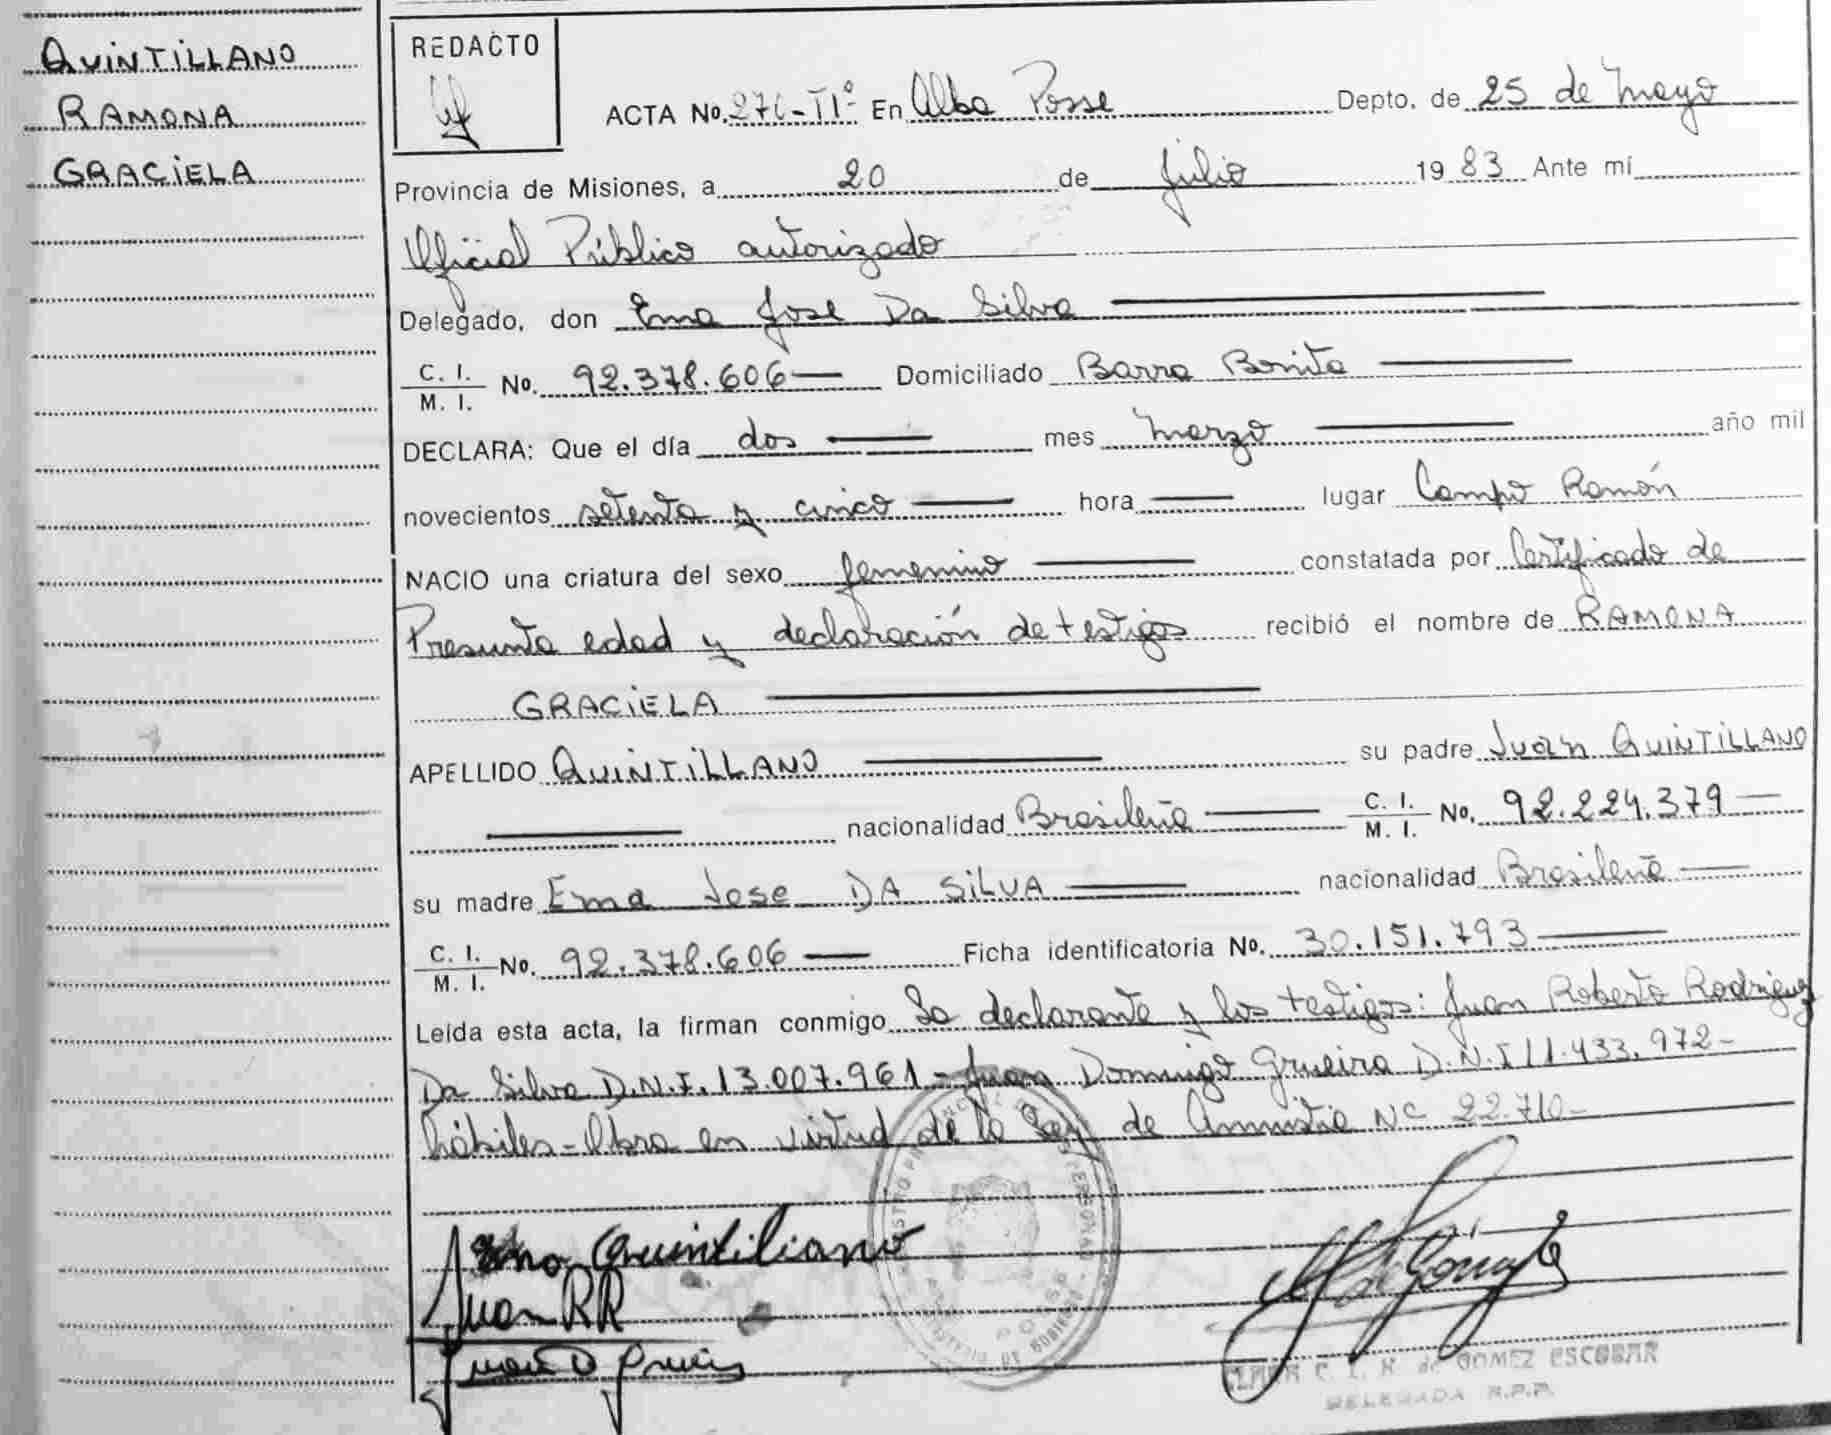 QUINTILLANO
RAMONA
GRACIELA
REDACTO
ACTA No. 276-IIº En Alba Posse Depto. de 25 de Mayo
Provincia de Misiones, a 20 de Julio 1983 Ante mí
Oficial Público autorizado
Delegado, don Ema Jose Da Silva
C. I. / M. I. No. 92.378.606 Domiciliado Barra Bonita
DECLARA: Que el día dos mes Marzo año mil
novecientos setenta y cinco hora lugar Campo Ramón
NACIO una criatura del sexo femenino constatada por Certificado de
Presunta edad y declaración de testigos recibió el nombre de RAMONA
GRACIELA
APELLIDO QUINTILLANO su padre Juan QUINTILLANO
nacionalidad Brasileña C. I. / M. I. No. 92.224.379
su madre Ema Jose DA SILVA nacionalidad Brasileña
C. I. / M. I. No. 92.378.606 Ficha identificatoria No. 30.151.793
Leída esta acta, la firman conmigo La declarante y los testigos: Juan Roberto Rodriguez
Da Silva D.N.I. 13.007.961 - Juan Domingo Grueira D.N.I 11.433.972-
hábiles - Obra en virtud de la Ley de Amnistia Nº 22.710-
Ema Quintiliano
Juan RR
Juan D
de GOMEZ ESCOBAR
DELEGADA R.P.P.